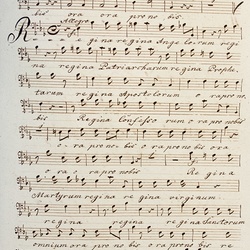 bis ora ora pro no bis
Allegro
Re gina re gina Ange lo rum regi
na regina Patriarcharum re gina Prophe
tarum regina Apostolorum o rapro no
bis Regina Confesso rum o ra pro nobis
o ra pro nobis o ra pro nobis ora
pro nobis o ra pro nobis Re gina
Martyrum regina re gina virginum
regina regina re gina Sanctorum
omnium ora pro nobis o ra pro nobis o ra pro